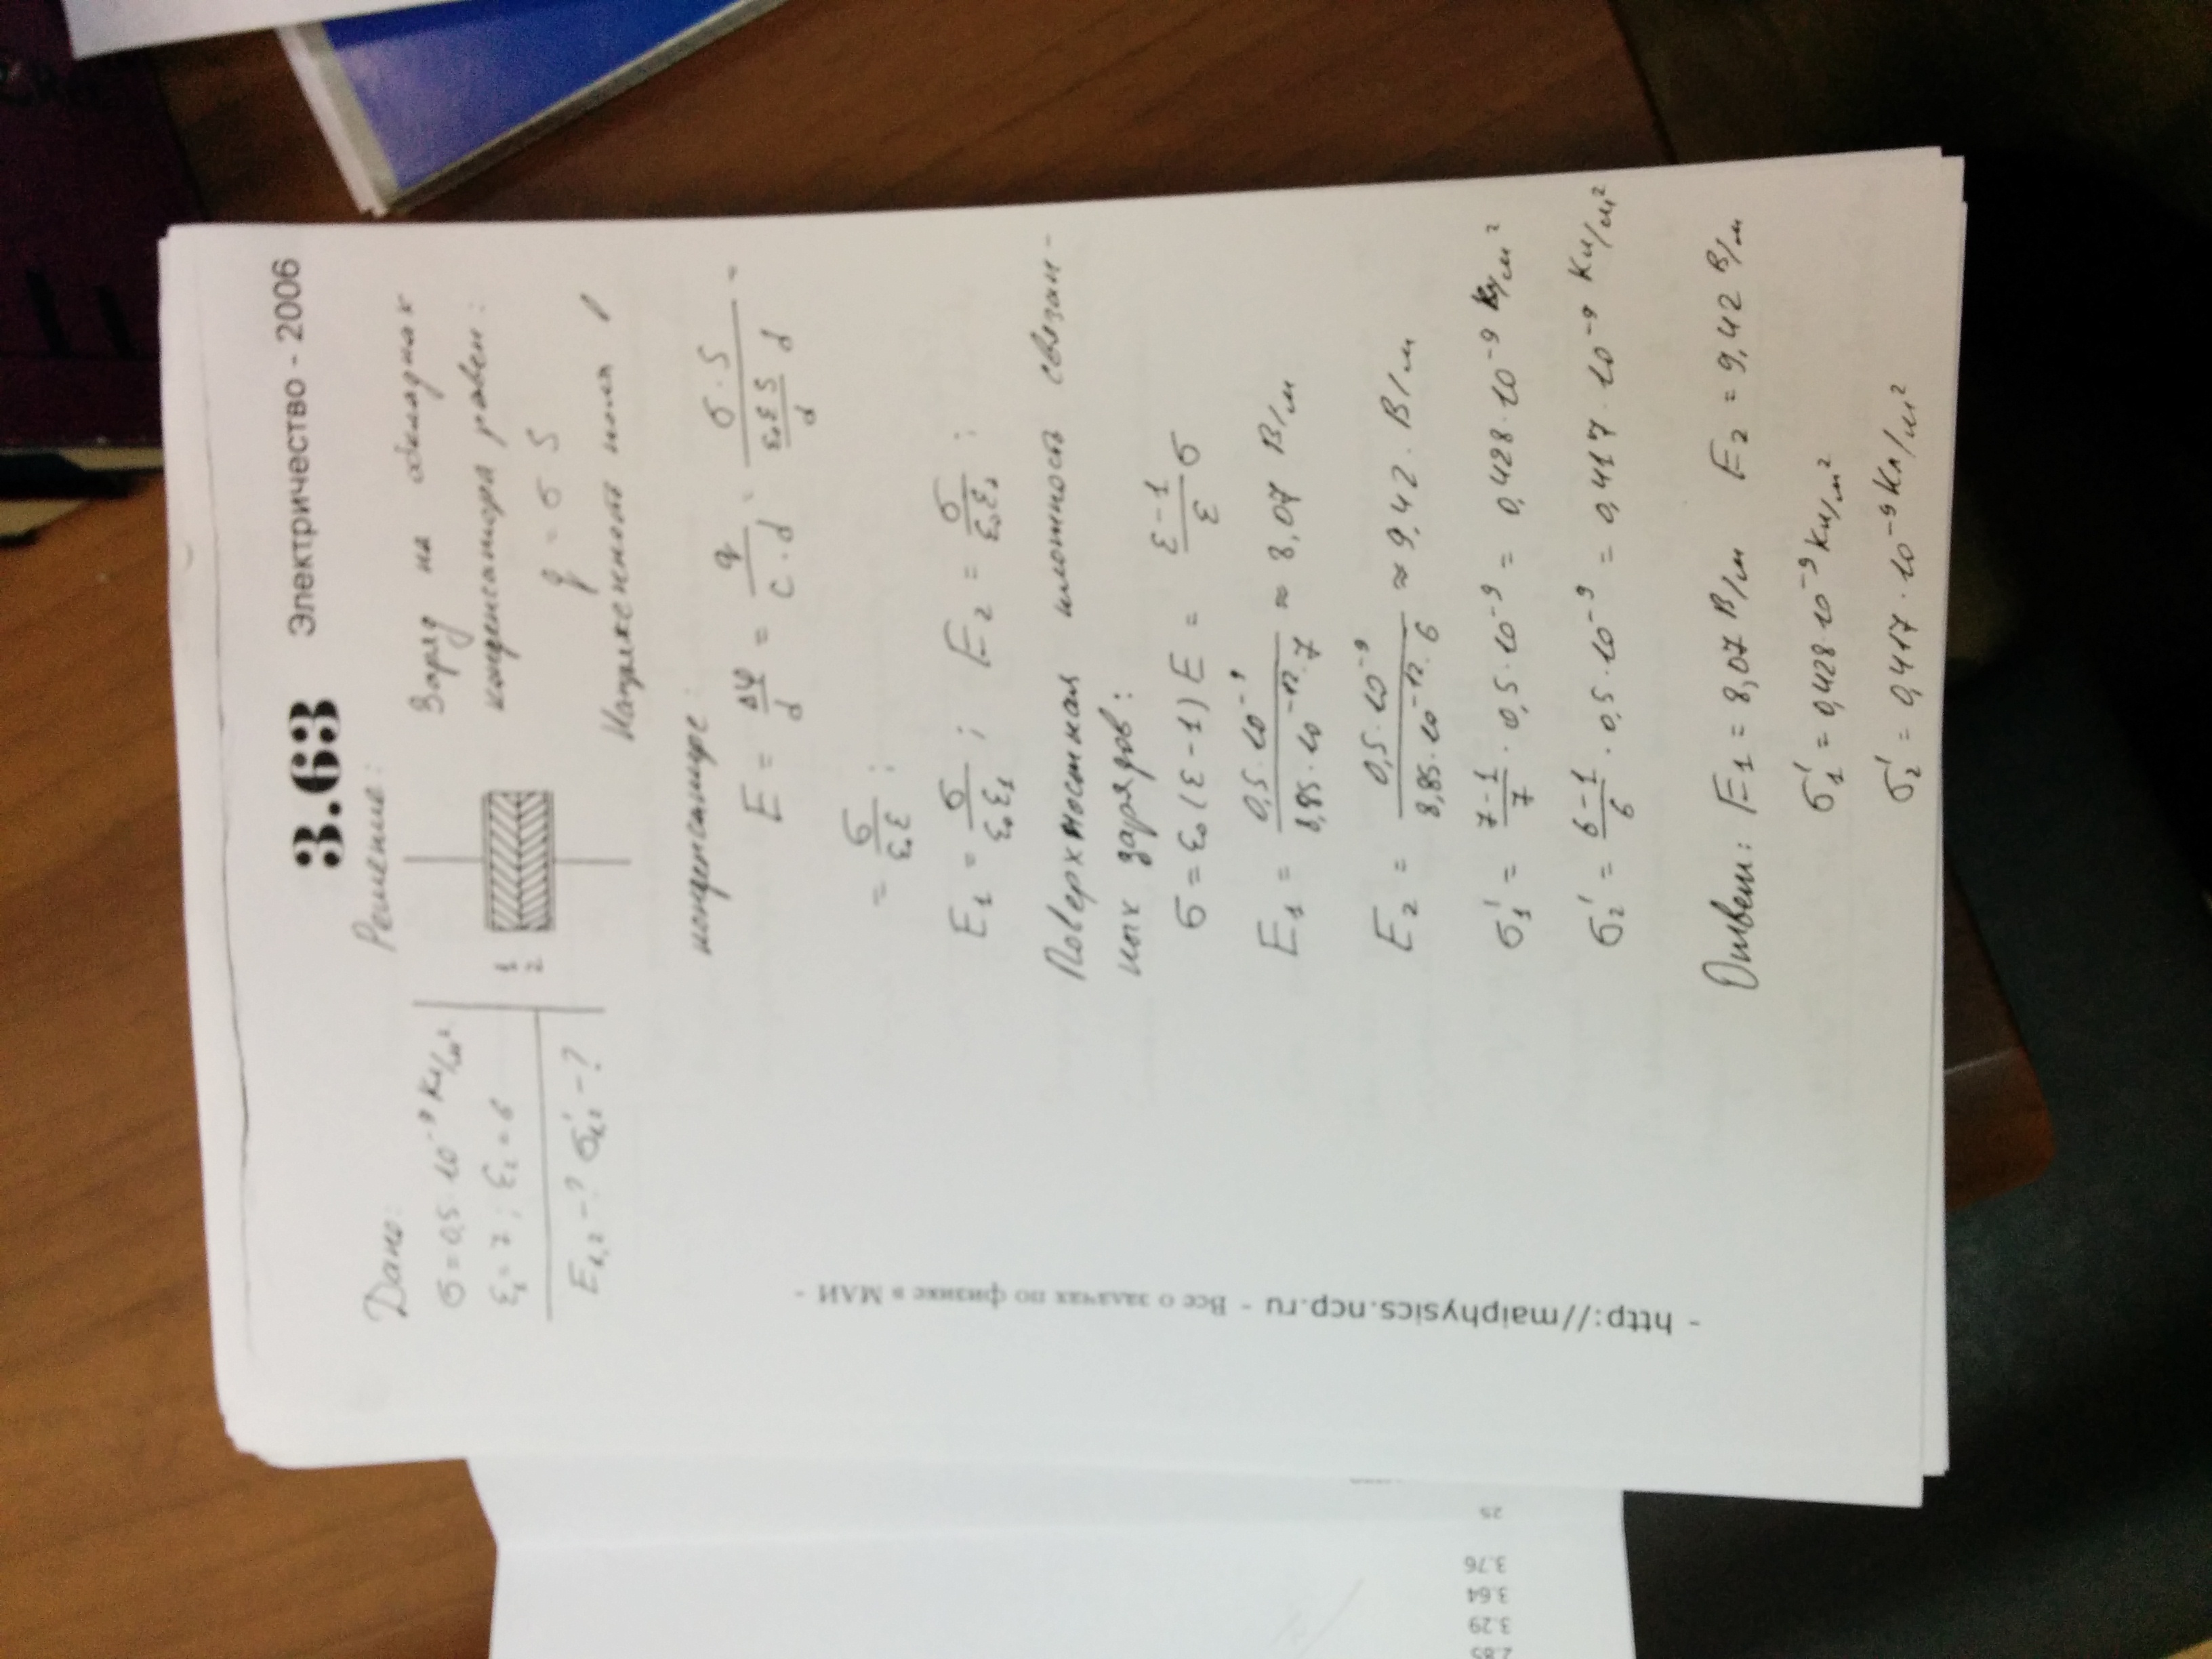 3.63 Электричество - 2006
Дано:
σ = 0,5·10⁻⁹ Кл/м²
ε₁ = 7; ε₂ = 6
E₁,₂ -? σ'₁,₂ -?
Решение:
1
2
Заряд на обкладках
конденсатора равен:
q = σ S
Напряженность поля в
конденсаторе:
E = Δφ/d = q/(C·d) = σ·S/((ε₀εS/d) d) =
= σ/(ε₀ε);
E₁ = σ/(ε₀ε₁); E₂ = σ/(ε₀ε₂);
Поверхностная плотность связан-
ных зарядов:
σ = ε₀(ε-1)E = (ε-1)/ε σ
E₁ = 0,5·10⁻⁹/(8,85·10⁻¹²·7) ≈ 8,07 В/м
E₂ = 0,5·10⁻⁹/(8,85·10⁻¹²·6) ≈ 9,42. В/м
σ₁' = (7-1)/7 · 0,5·10⁻⁹ = 0,428·10⁻⁹ Кл/м²
σ₂' = (6-1)/6 · 0,5·10⁻⁹ = 0,417·10⁻⁹ Кл/м²
Ответ: E₁ = 8,07 В/м E₂ = 9,42 В/м
σ₁' = 0,428·10⁻⁹ Кл/м²
σ₂' = 0,417·10⁻⁹ Кл/м²
- http://maiphysics.ncp.ru - Все о задачах по физике в МАИ -
2.85
3.29
3.64
3.76
25